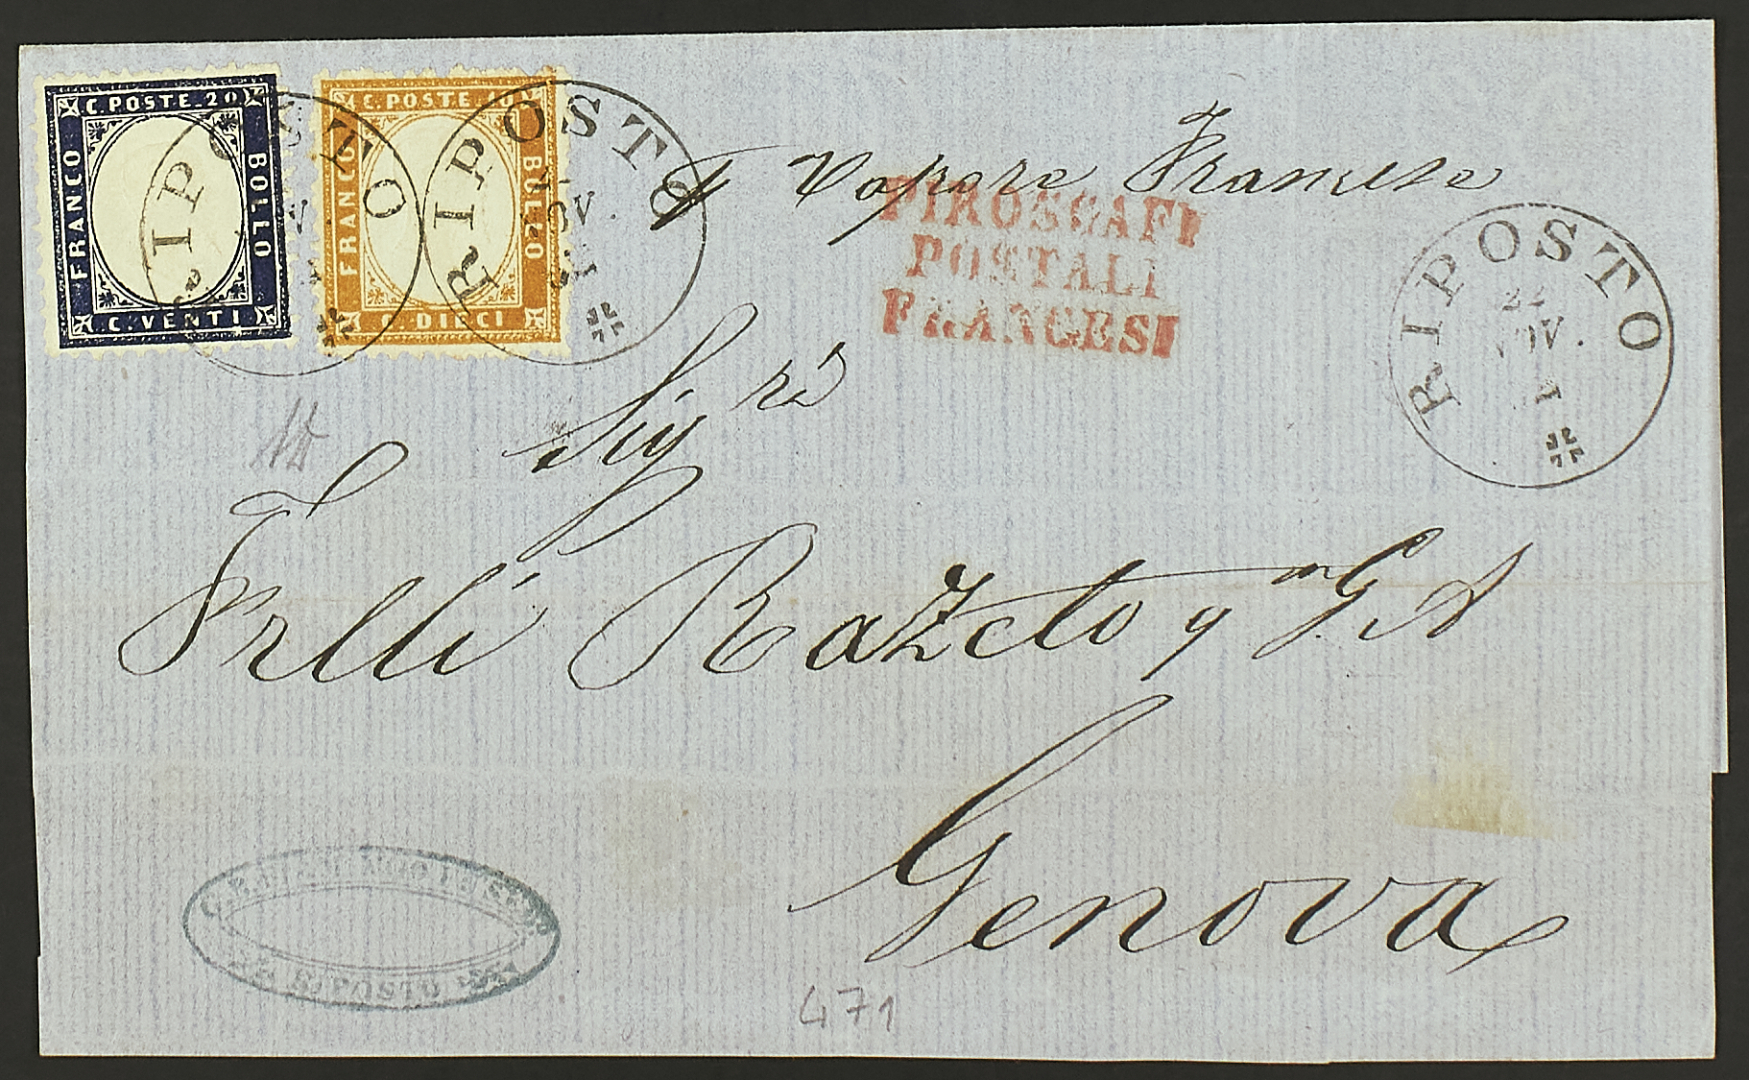 C. POSTE. 20
FRANCO
BOLLO
C. VENTI
C. POSTE. 10
FRANCO
BOLLO
C. DIECI
RIPOSTO
RIPOSTO
NOV.
Vapore Francese
PIROSCAFI
POSTALI
FRANCESI
RIPOSTO
22
NOV.
Sigri
Frlli Razeto q G A
Genova
RIPOSTO
471